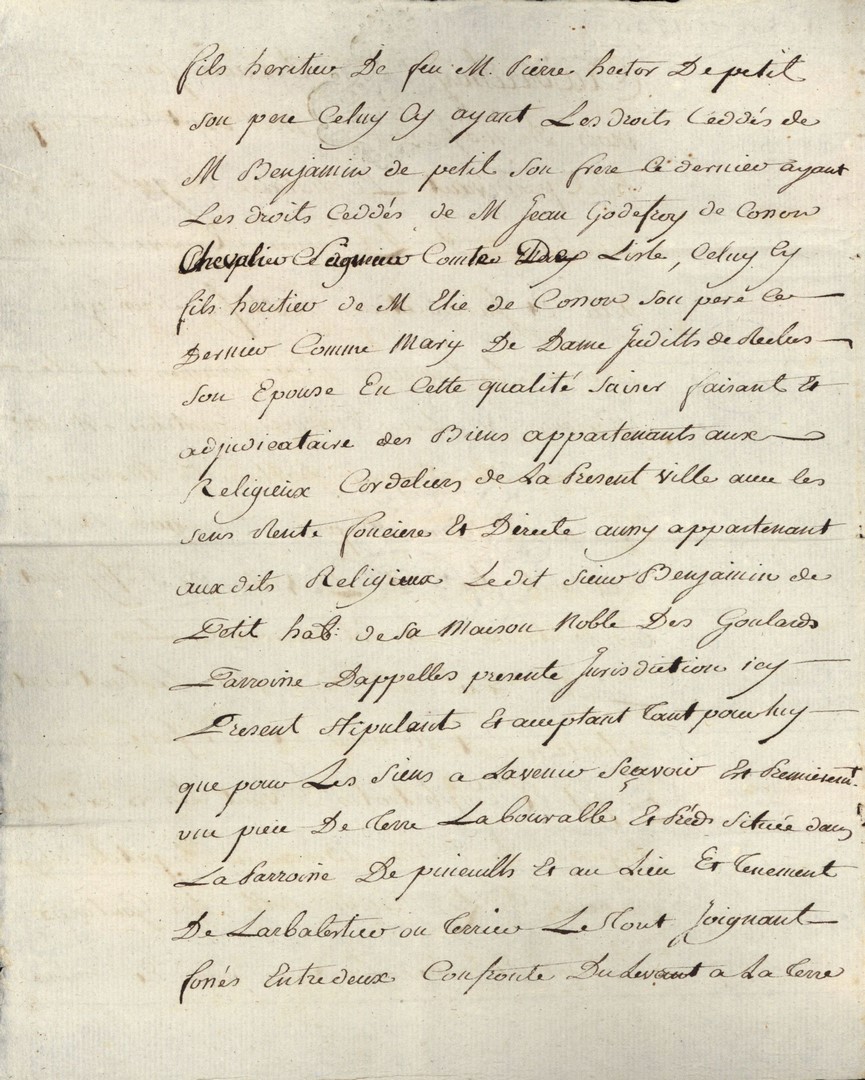 fils heritier De feu M. Pierre hector Depetit
son pere Celuy Cy ayant Les droits Ceddés de
M Benjamin de petit son frere ce dernier ayant
Les droits Ceddés de M Jean Godefroy de Cosson
Chevalier Seigneur Comte De Lisle, Celuy Cy
fils heritier de M Elie de Cosson son pere Ce
Dernier Comme Mary De Dame Judith de Reclus
son Epouse En Cette qualité saisir faisant Et
adjudicataire des Biens appartenants aux
Religieux Cordeliers de La Present Ville avec les
sens Rente fonciere Et Directe aussy appartenant
aux dits Religieux Ledit sieur Benjamin de
Petit hab: de sa Maison Noble Des Goulards
Parroisse Dappelles presente Jurisdiction icy
Present stipulant Et acceptant Tant pour luy
que pour Les siens a Lavenir Sçavoir Et Premierem.t
une piece De Terre Labourable Et Préds située dans
La Parroisse De pineuilh Et au Lieu Et Tenement
De Larbalestier ou Terrier Le Joignant
fossés Entredeux Confronte Du Levant a La Terre